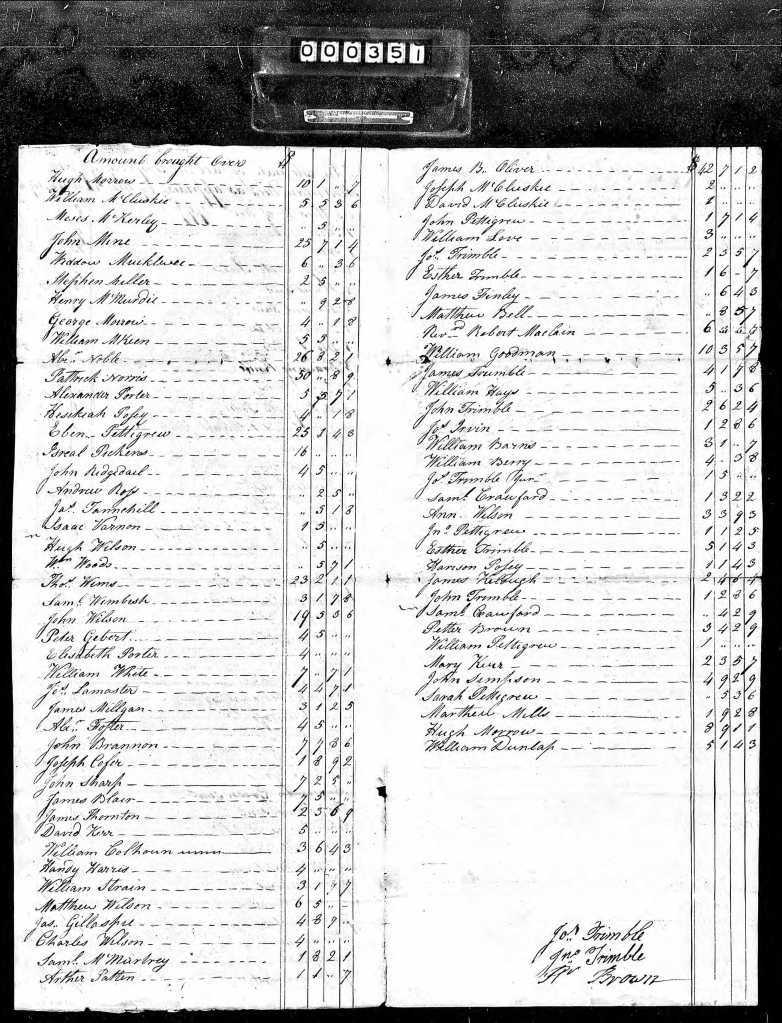 000351
Amount brought Over $
Hugh Morrow 10 1 .. 7
William McCluskie 5 5 3 6
Moses McKerley .. 5 .. ..
John Mine 25 7 1 4
Widdow Mucklwee 6 .. 3 6
Stephen Miller 2 5 .. ..
Henry McMurdie .. 9 2 8
George Morrow 4 .. 1 8
William McKeen 5 5 .. ..
Abr. Noble 26 8 2 1
Pattrick Norris 50 .. 8 9
Alexander Porter 5 5 7 1
Hesikiah Posey 4 .. 1 8
Eben Pettigrew 25 1 4 3
Isreal Peckens 16 .. .. ..
John Ridgedail 4 5 .. ..
Andrew Ross .. 2 5 ..
Jas. Tannehill .. 5 1 8
Isaac Varnon 1 5 .. ..
Hugh Wilson .. 5 .. ..
Wm Woods .. 5 7 1
Thos. Wims 23 2 1 1
Saml. Wimbish 3 1 7 8
John Wilson 19 5 3 6
Peter Gebert 4 5 .. ..
Elisabeth Porter 4 .. .. ..
William White 7 .. 7 1
Jas. Lamaster 4 4 7 1
James Millgan 3 1 2 5
Abr. Foster 4 5 .. ..
John Brannon 7 7 8 6
Joseph Cofer 1 8 9 2
John Sharp 7 2 5 ..
James Blair 7 5 .. ..
James Thornton 2 5 6 9
David Kerr 5 .. .. ..
William Colhoun 3 6 4 3
Handy Harris 4 .. .. ..
William Strain 3 1 7 7
Matthew Wilson 6 5 .. ..
Jas. Gillaspie 4 8 7 ..
Charles Wilson 4 .. .. ..
Saml. McMurtrey 1 8 2 1
Arther Patten 1 1 .. 7
James B. Oliver $ 42 7 1 2
Joseph McCluskie 2 .. .. ..
David McCluskie 1 .. .. ..
John Pettigrew 1 7 1 4
William Love 3 .. .. ..
Jos. Trimble 2 3 5 7
Esther Trimble 1 6 .. 7
James Finley .. 6 4 3
Matthew Bell .. 8 5 7
Revd. Robert Maclain 6
William Goodman 10 3 5 7
James Trimble 4 1 7 8
William Hays 5 .. 3 6
John Trimble 2 6 2 4
Jos. Irvin 1 2 8 6
William Barns 3 1 .. 7
William Berry 4 .. 3 8
Jos. Trimble Jur. 1 5 .. ..
Saml. Crawford 1 3 2 2
Ann Wilson 3 3 9 3
Jno. Pettigrew 1 1 2 5
Esther Trimble 5 1 4 3
Harison Posey 1 1 4 3
James Keough 2 4 6 4
John Trimble 1 2 8 6
Saml. Crawford .. 4 2 9
Petter Brown 3 4 2 9
William Pettigrew 1 .. .. ..
Mary Kerr 2 3 5 7
John Simpson 4 9 2 9
Sarah Pettigrew .. 5 3 6
Marthew Mills 1 9 2 8
Hugh Morrow 8 9 1 1
William Dunlap 5 1 4 3
Jos. Trimble
Jno. Trimble
Brown